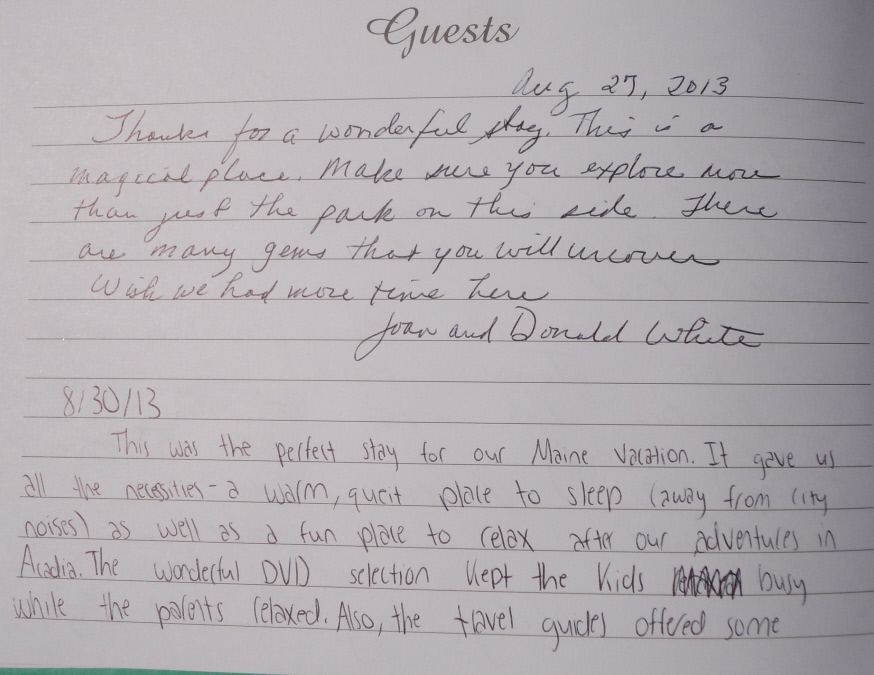 Guests
Aug 27, 2013
Thanks for a wonderful stay. This is a
magical place. Make sure you explore more
than just the park on this side. There
are many gems that you will uncover
Wish we had more time here
Joan and Donald White
8/30/13
This was the perfect stay for our Maine vacation. It gave us
all the necessities - a warm, queit place to sleep (away from city
noises) as well as a fun place to relax after our adventures in
Acadia. The wonderful DVD selection kept the kids busy
while the parents relaxed. Also, the travel guides offered some